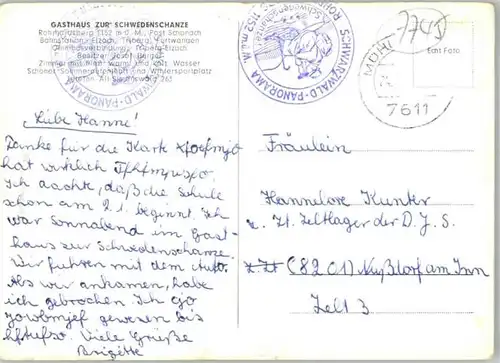 GASTHAUS ZUR SCHWEDENSCHANZE
Rohrhardsberg 1152 m ü. M., Post Schonach
Bahnstation: Elzach, Triberg, Furtwangen
Omnibusverbindung: Triberg-Elzach
Besitzer: Josef Burger
Zimmer mit fließ. warm und kalt Wasser
Schönes Sommerferienziel und Wintersportplatz
Telefon: Amt Simonswald 263
SCHWARZWALD-PANORAMA
SCHWARZWALD-PANORAMA
1152 m
Echt Foto
7611
Liebe Hanne!
Danke für die Karte
hat wirklich
Ich dachte, daß die Schule
schon am 21. beginnt. Ich
war Sonnabend im Gast-
haus zur Schwedenschanze.
Wir fuhren mit dem Auto.
Als wir ankamen, habe
ich gebrochen. Ich
gewesen bis
Viele Grüße
Brigitte
Fräulein
Hannelore Kunter
z. Zt. Zeltlager der D.J.S.
z.Zt (8201) Nußdorf am Inn
Zelt 3